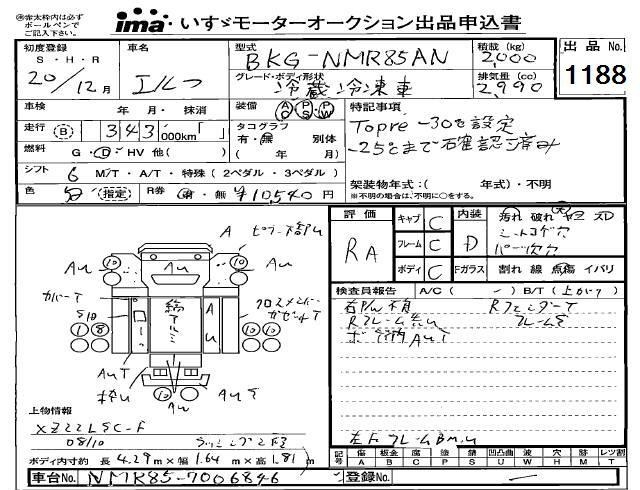 ※赤太枠内は必ず
ボールペンで
ご記入下さい。
ima いすゞモーターオークション出品申込書
初度登録
S・H・R
20/12月
車名
エルフ
型式
BKG-NMR85AN
グレード・ボディ形状
冷蔵冷凍車
積載(kg)
2,000
排気量(cc)
2,990
出品 No.
1188
車検
年 月・抹消
装備
AC PS PW
走行 (B) 343,000km「 」
タコグラフ
有・無 別体
( 年 月)
燃料 G・D・HV 他( )
シフト 6 M/T・A/T・特殊(2ペダル・3ペダル)
色 白 (指定)
R券 有・無 ¥10,540円
特記事項
Topre -30℃設定
-25℃まで確認済み
架装物年式:( 年式)・不明
※不明の場合は、不明に○をする。
評価
RA
キャブ C
フレーム C
ボディ C
内装 D
Fガラス
汚れ 破れ ヤニ スD
シートコゲ穴
パーツ欠穴
割れ 線 点傷 イバリ
検査員報告 A/C( ー ) B/T(上がけ)
右P/W不良
RフェンダーT
RフレームU
フレームS
AUT
左下フレーム
A
AU
AU
AU
カバーT
S10
クロスメンバー
ガゼットT
AU
AUT
枠U
AUS
AW
上物情報
XZ22LSC-F
08/10
ボディ内寸約 長 4.29m×幅 1.64m×高 1.81m
記号
傷 板金 腐 塗 錆 凹凸曲 波 穴 跡 レツ割
A B C P S U W H M T
車台No. NMR85-7006846
登録No. ー